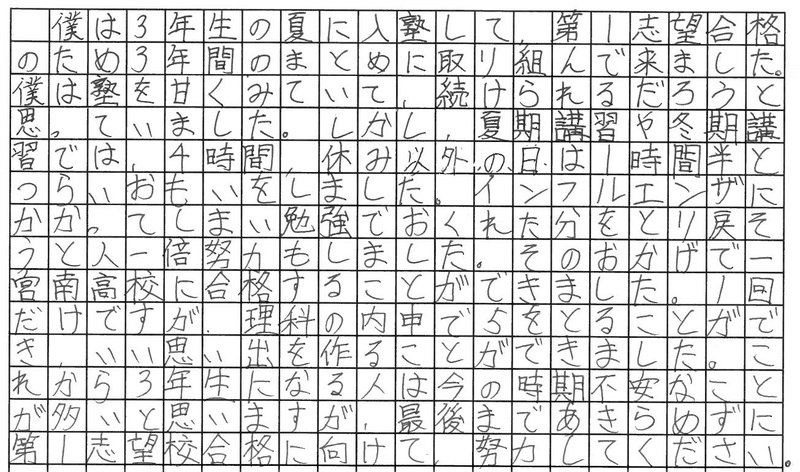 僕は3年生の夏に入塾して、第1志望合格
のため3年間のまとめに取り組んで来ました。
僕は塾を甘くみていて、続けられるだろうと
思っていました。しかし、夏期講習や冬期講
習では、4時間、休み以外の日は1時間半と
つらいおもいをしました。インフルエンザに
かかってしまい勉強でおくれた分をとり戻そ
うと人一倍努力もしました。そのおかげで一
宮南高校に合格することができました。1回
だけですが、理科の内申で5をとることがで
き、いい思い出を作ることができました。こ
れから3年生になる人は今の時期不安なこと
が多いと思いますが、最後まであきらめずに
第1志望校合格に向けて、努力してください。